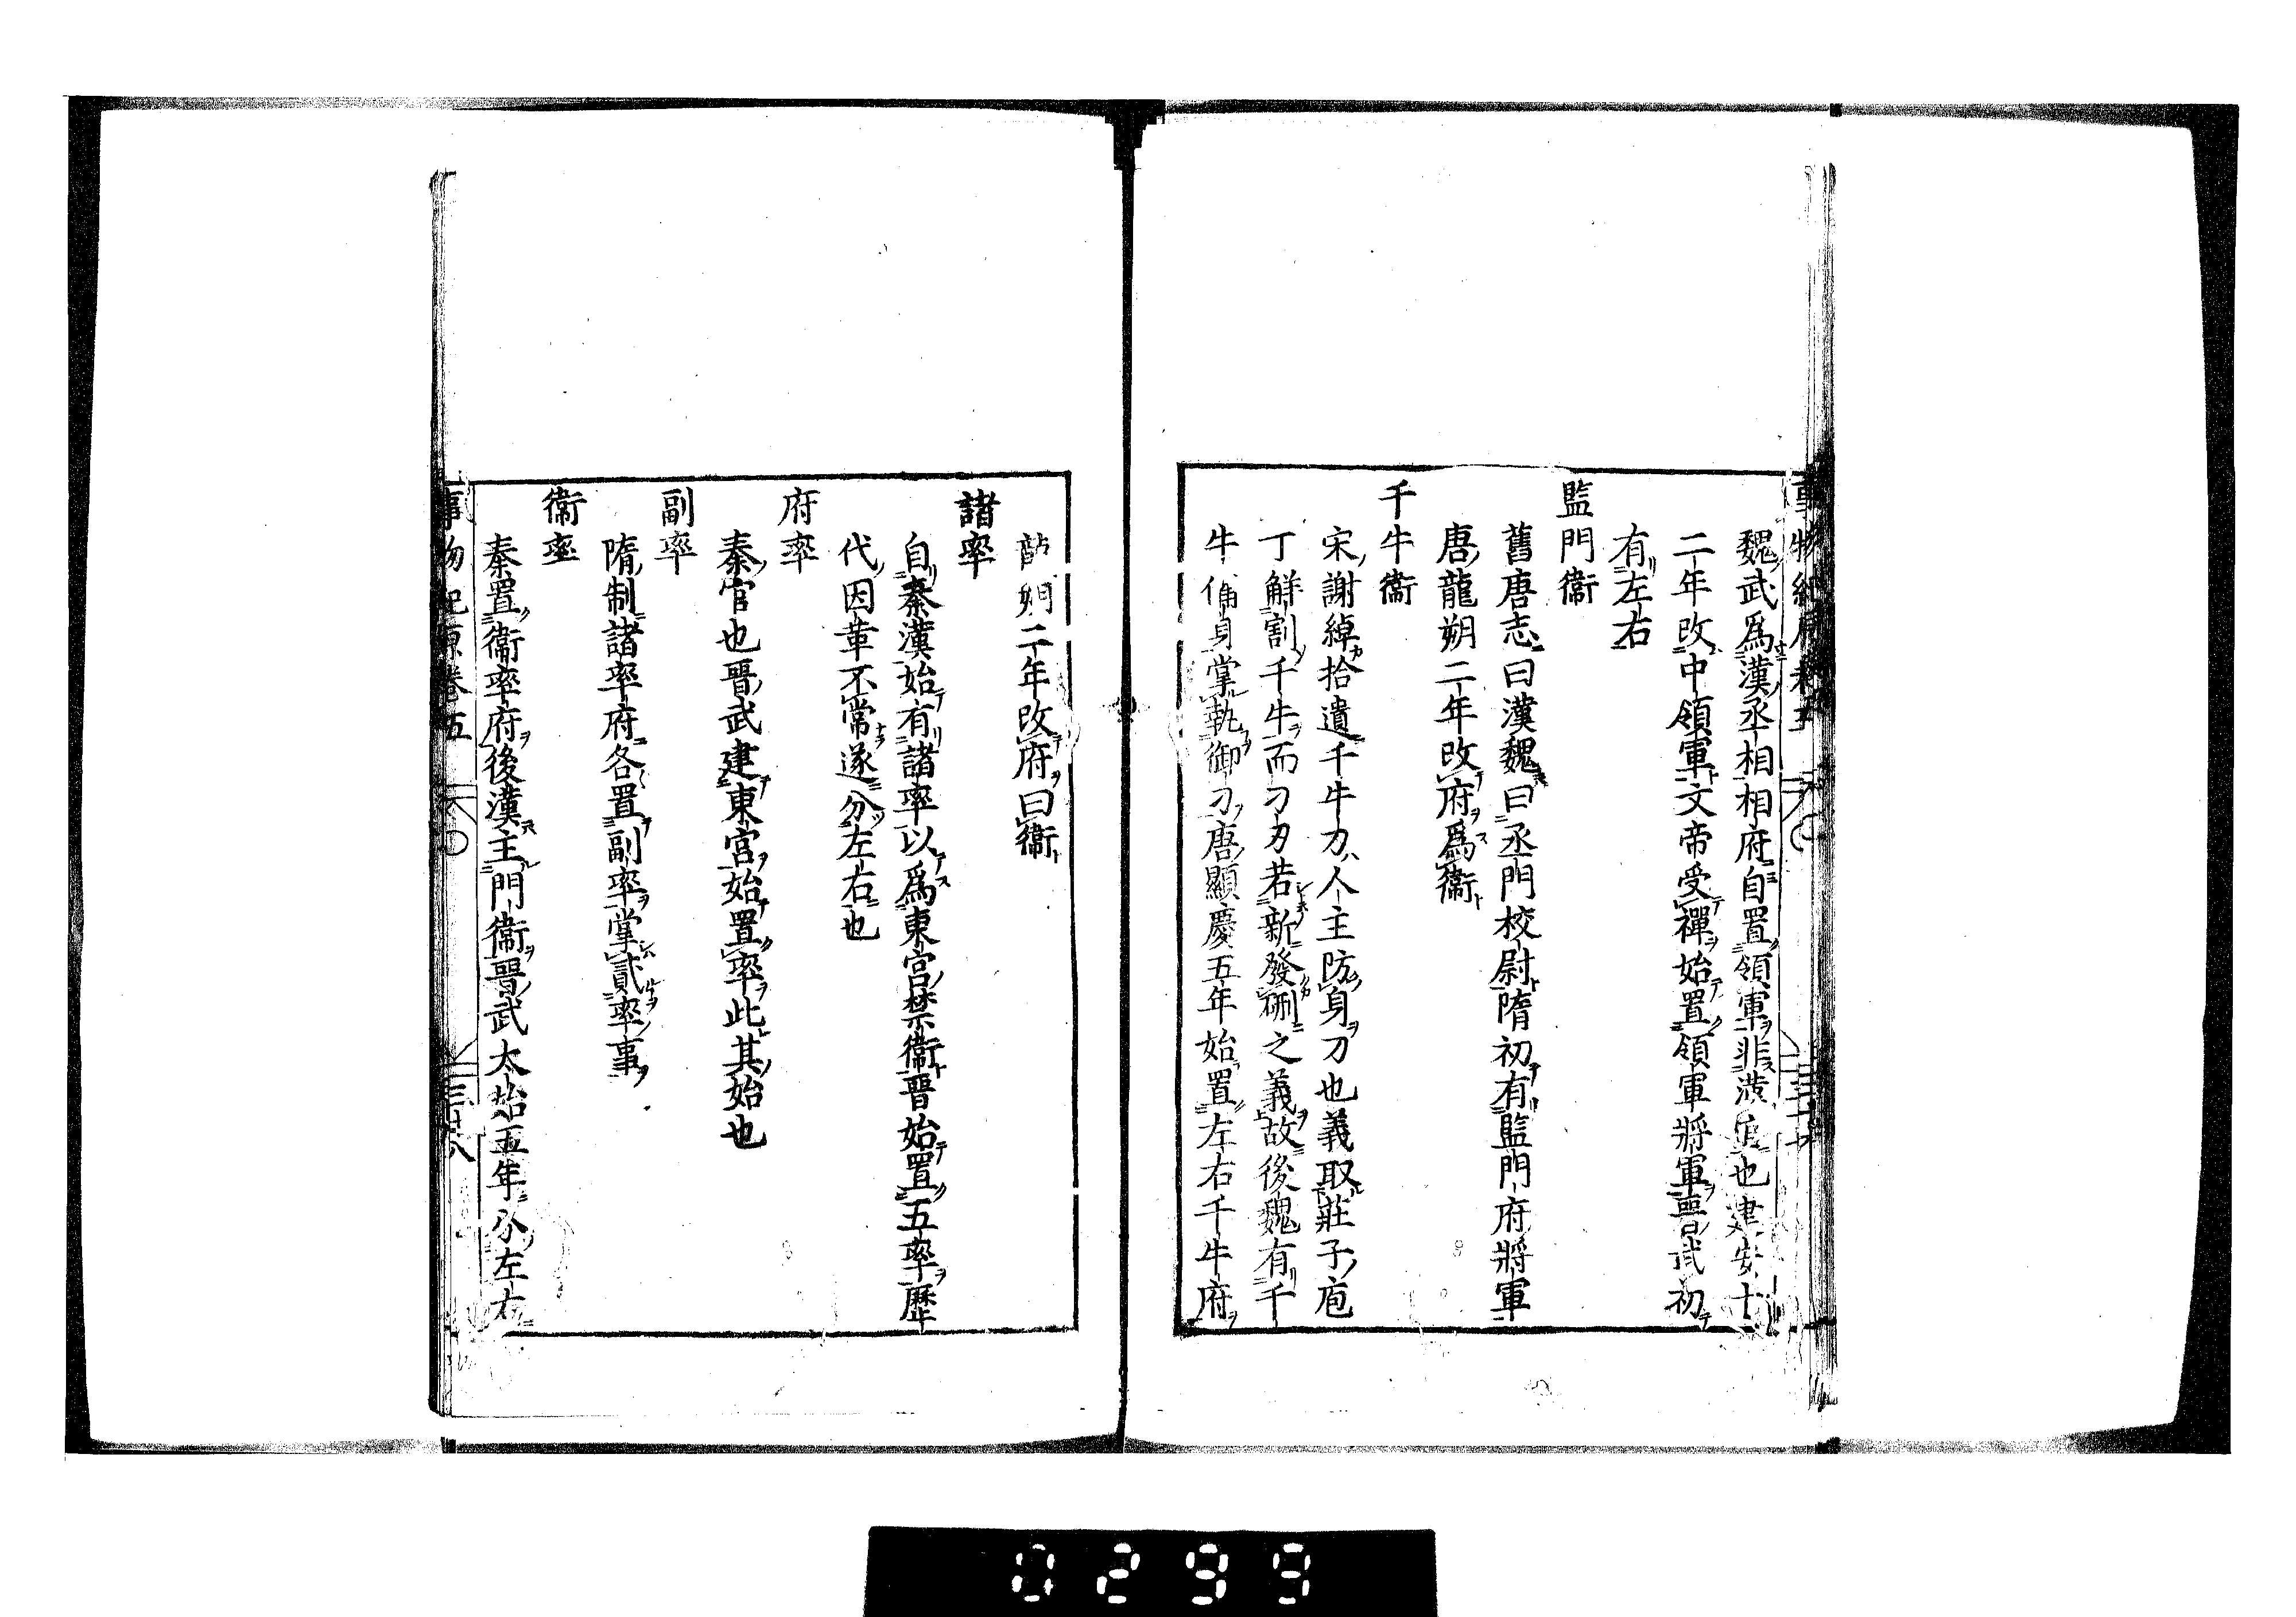 魏武爲漢丞相相府自置領軍非漢官也建安十
二年改中領軍文帝受禪始置領軍將軍晉武初
有左右
監門衞
舊唐志曰漢魏曰丞門校尉隋初有監門府將軍
唐龍朔二年改府爲衞
千牛衞
宋謝綽拾遺千牛刀人主防身刀也義取莊子庖
丁觧割千牛而刁刃若新發硎之義故後魏有千
牛俻身掌執御刀唐顯慶五年始置左右千牛府
龍朔二年改府曰衞
諸率
自秦漢始有諸率以爲東宮禁衞晉始置五率歷
代因革不常遂分左右也
府率
秦官也晉武建東宮始置率此其始也
副率
隋制諸率府各置副率掌貳率事
衞率
秦置衞率府後漢主門衞晉武太始五年分左右
事物紀原卷五
三十八
0299